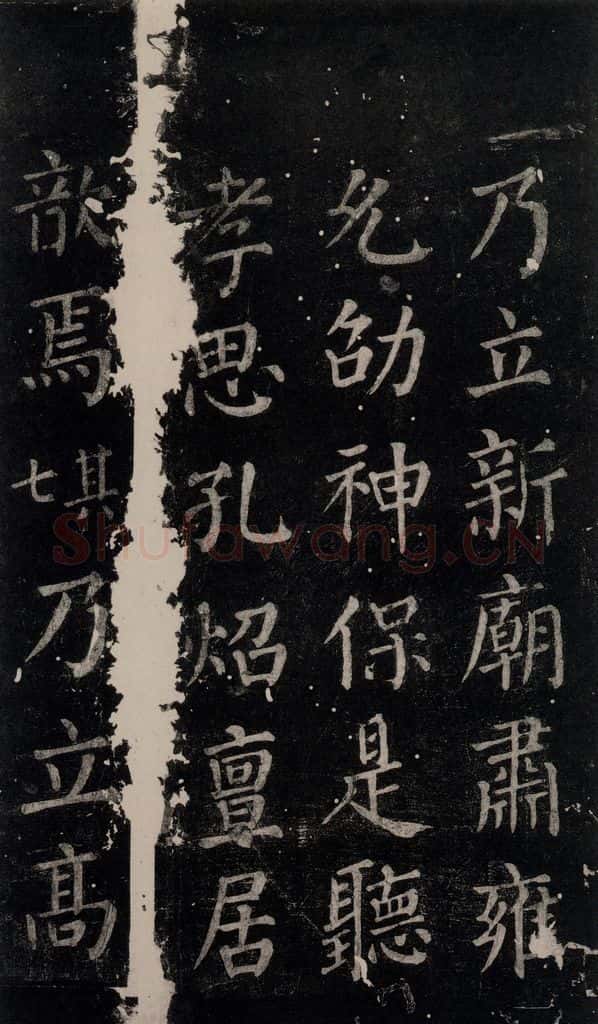 乃立新廟肅雍
允劭神保是聽
孝思孔炤亶居
歆焉其七乃立髙
Shufawang.CN